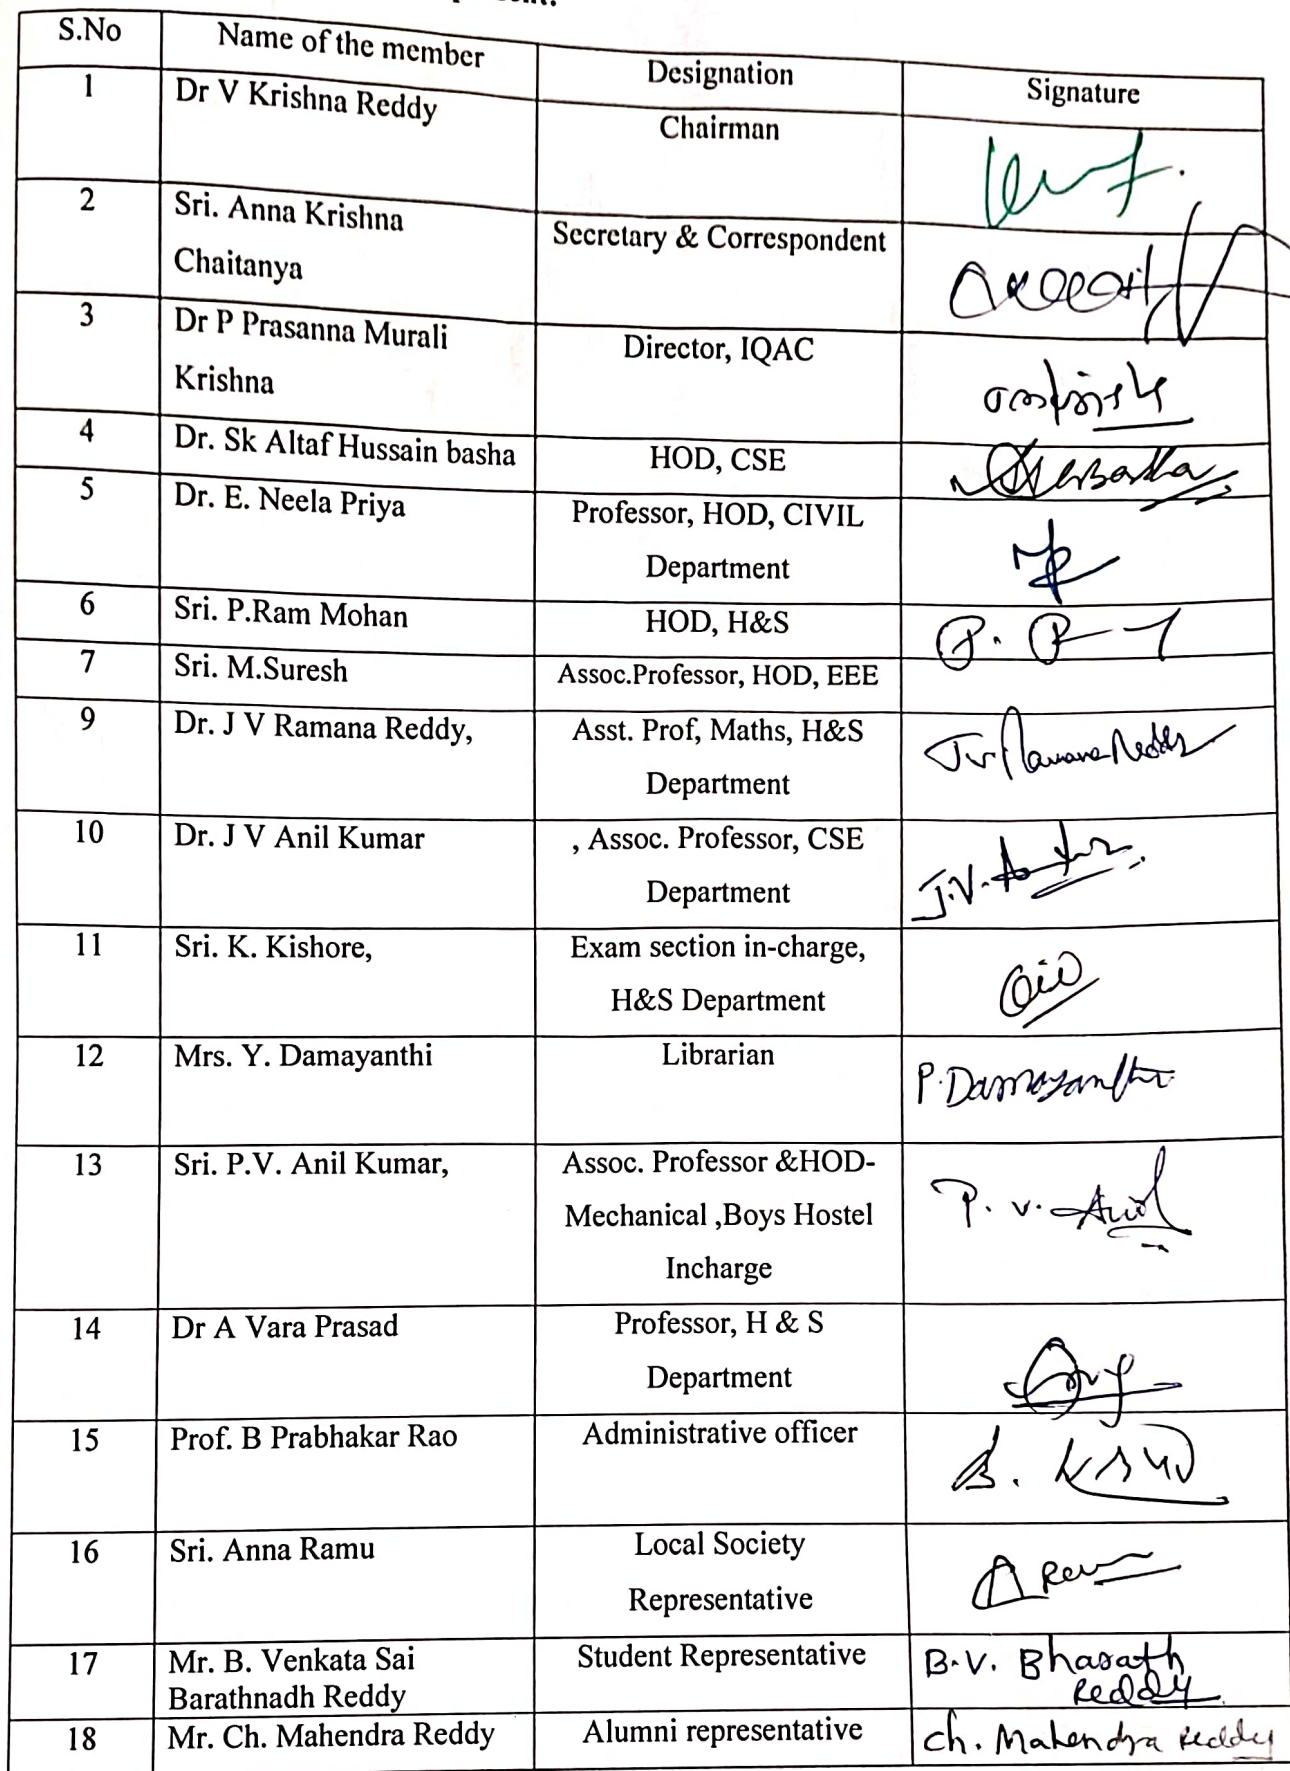 S.No Name of the member Designation Signature
1 Dr V Krishna Reddy Chairman
2 Sri. Anna Krishna Secretary & Correspondent
Chaitanya
3 Dr P Prasanna Murali Director, IQAC
Krishna
4 Dr. Sk Altaf Hussain basha HOD, CSE
5 Dr. E. Neela Priya Professor, HOD, CIVIL
Department
6 Sri. P.Ram Mohan HOD, H&S
7 Sri. M.Suresh Assoc.Professor, HOD, EEE
9 Dr. J V Ramana Reddy, Asst. Prof, Maths, H&S Jv Ramana Reddy
Department
10 Dr. J V Anil Kumar , Assoc. Professor, CSE
Department J.V.
11 Sri. K. Kishore, Exam section in-charge,
H&S Department
12 Mrs. Y. Damayanthi Librarian P. Damayanthi
13 Sri. P.V. Anil Kumar, Assoc. Professor &HOD- P. V. Anil
Mechanical ,Boys Hostel
Incharge
14 Dr A Vara Prasad Professor, H & S
Department
15 Prof. B Prabhakar Rao Administrative officer
16 Sri. Anna Ramu Local Society
Representative
17 Mr. B. Venkata Sai Student Representative B.V. Bharath
Barathnadh Reddy Reddy
18 Mr. Ch. Mahendra Reddy Alumni representative Ch. Mahendra Reddy